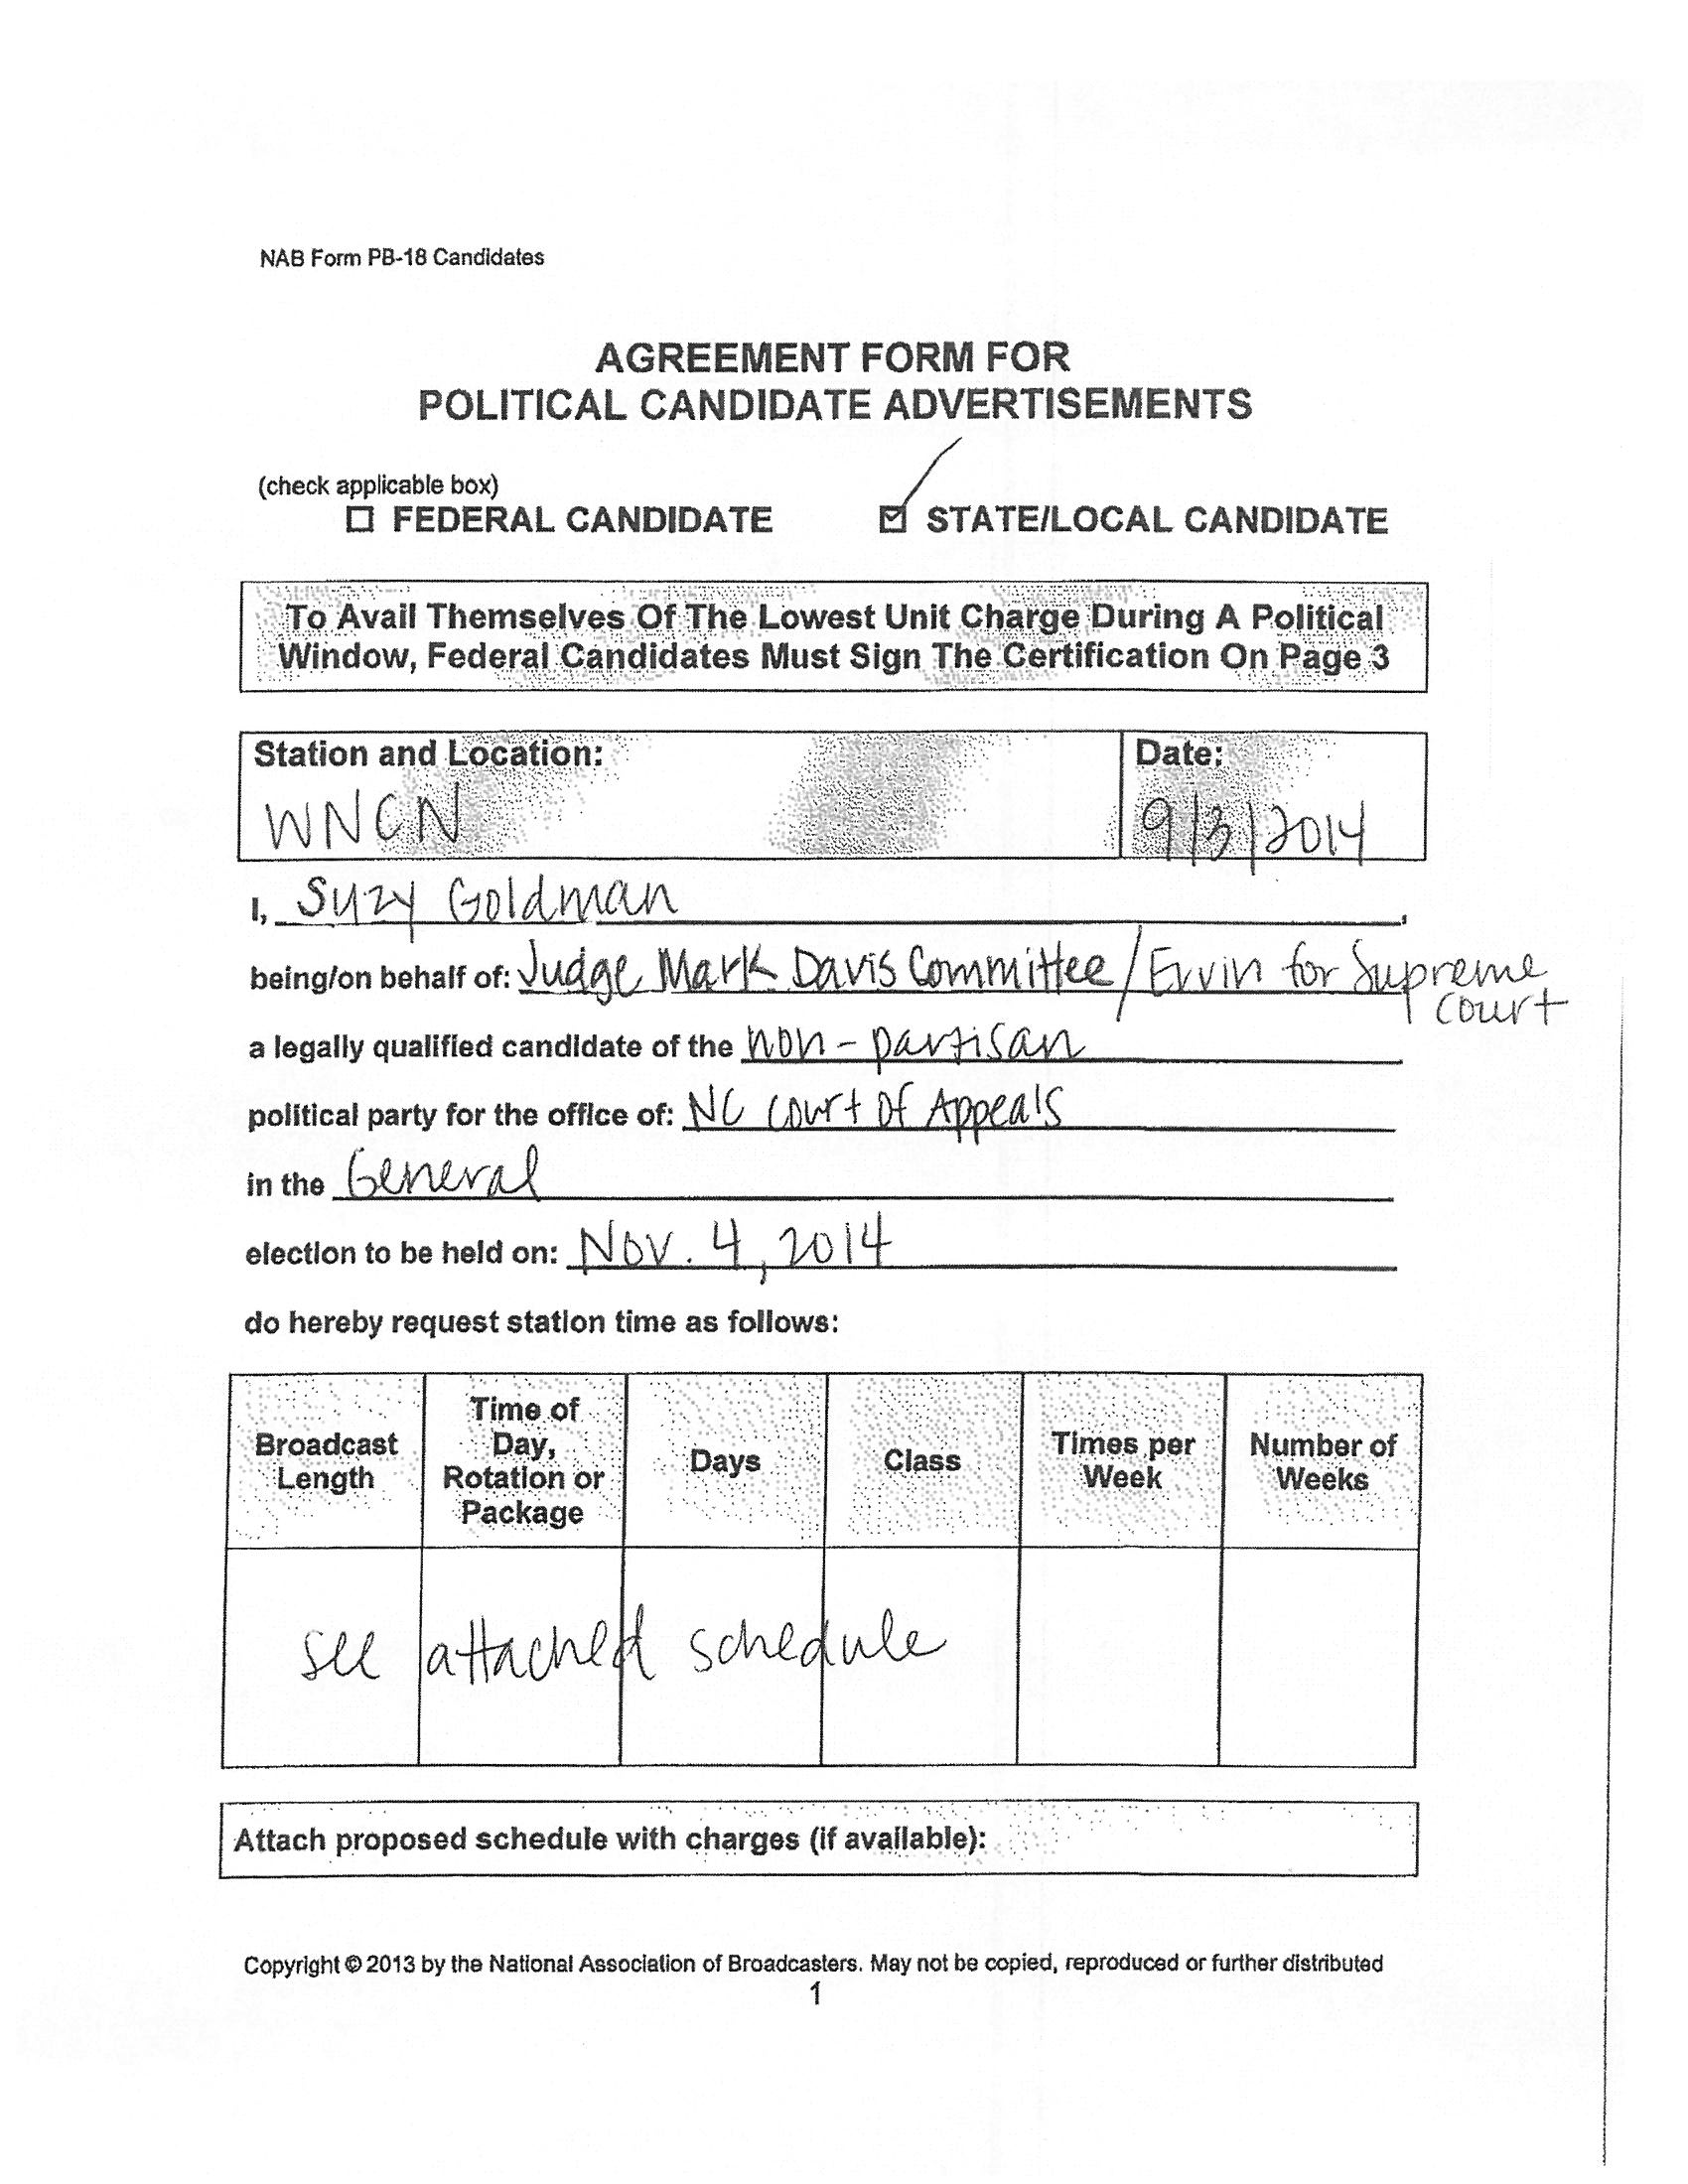 NAB Form PB-18 Candidates
AGREEMENT FORM FOR
POLITICAL CANDIDATE ADVERTISEMENTS
(check applicable box)
☐ FEDERAL CANDIDATE ☑ STATE/LOCAL CANDIDATE
To Avail Themselves Of The Lowest Unit Charge During A Political
Window, Federal Candidates Must Sign The Certification On Page 3
Station and Location: Date:
WNCN 9/3/2014
I, Suzy Goldman,
being/on behalf of: Judge Mark Davis Committee / Ervin for Supreme
Court
a legally qualified candidate of the non-partisan
political party for the office of: NC Court of Appeals
in the General
election to be held on: Nov. 4, 2014
do hereby request station time as follows:
Broadcast Length
Time of Day, Rotation or Package
Days
Class
Times per Week
Number of Weeks
see attached schedule
Attach proposed schedule with charges (if available):
Copyright © 2013 by the National Association of Broadcasters. May not be copied, reproduced or further distributed
1